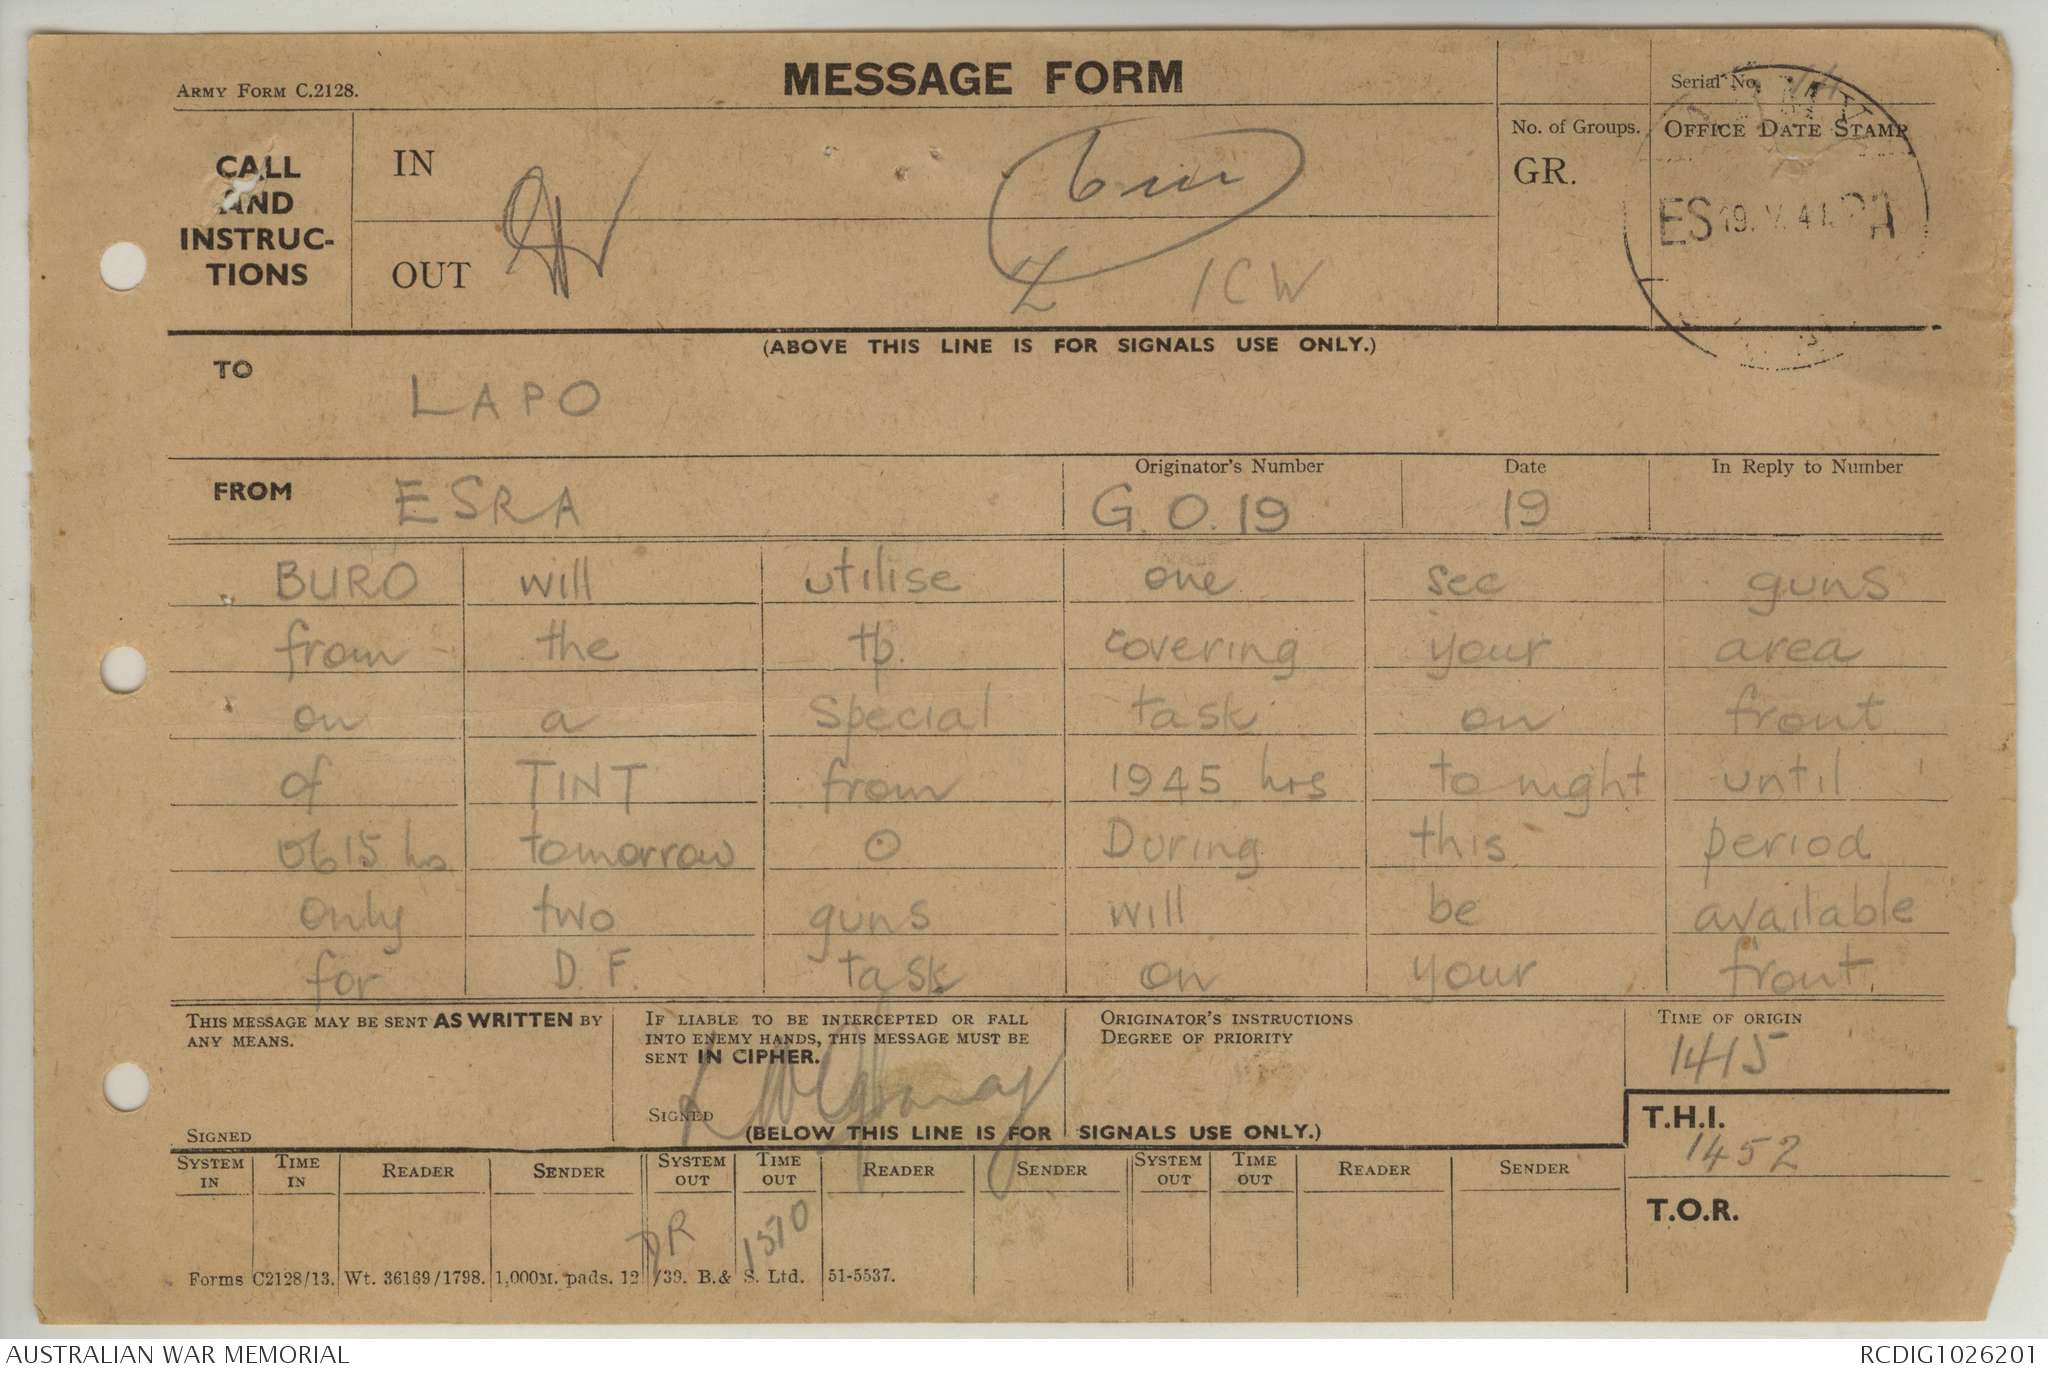 ARMY FORM C.2128.
MESSAGE FORM
Serial No.
CALL AND INSTRUC- TIONS
IN
OUT
Z 1CW
No. of Groups.
GR.
OFFICE DATE STAMP
ES 19. V. 41. RA
(ABOVE THIS LINE IS FOR SIGNALS USE ONLY.)
TO LAPO
FROM ESRA
Originator's Number G.O.19
Date 19
In Reply to Number
BURO will utilise one sec guns
from the tp. covering your area
on a special task on front
of TINT from 1945 hrs to night until
0615 hrs tomorrow O During this period
only two guns will be available
for D.F. task on your front.
THIS MESSAGE MAY BE SENT AS WRITTEN BY ANY MEANS.
SIGNED
IF LIABLE TO BE INTERCEPTED OR FALL INTO ENEMY HANDS, THIS MESSAGE MUST BE SENT IN CIPHER.
SIGNED
ORIGINATOR'S INSTRUCTIONS
DEGREE OF PRIORITY
TIME OF ORIGIN
1415
(BELOW THIS LINE IS FOR SIGNALS USE ONLY.)
T.H.I.
1452
T.O.R.
SYSTEM IN TIME IN READER SENDER SYSTEM OUT TIME OUT READER SENDER SYSTEM OUT TIME OUT READER SENDER
DR 1510
Forms C2128/13. Wt. 36169/1798. 1,000M. pads. 12/39. B.& S. Ltd. 51-5537.
AUSTRALIAN WAR MEMORIAL
RCDIG1026201